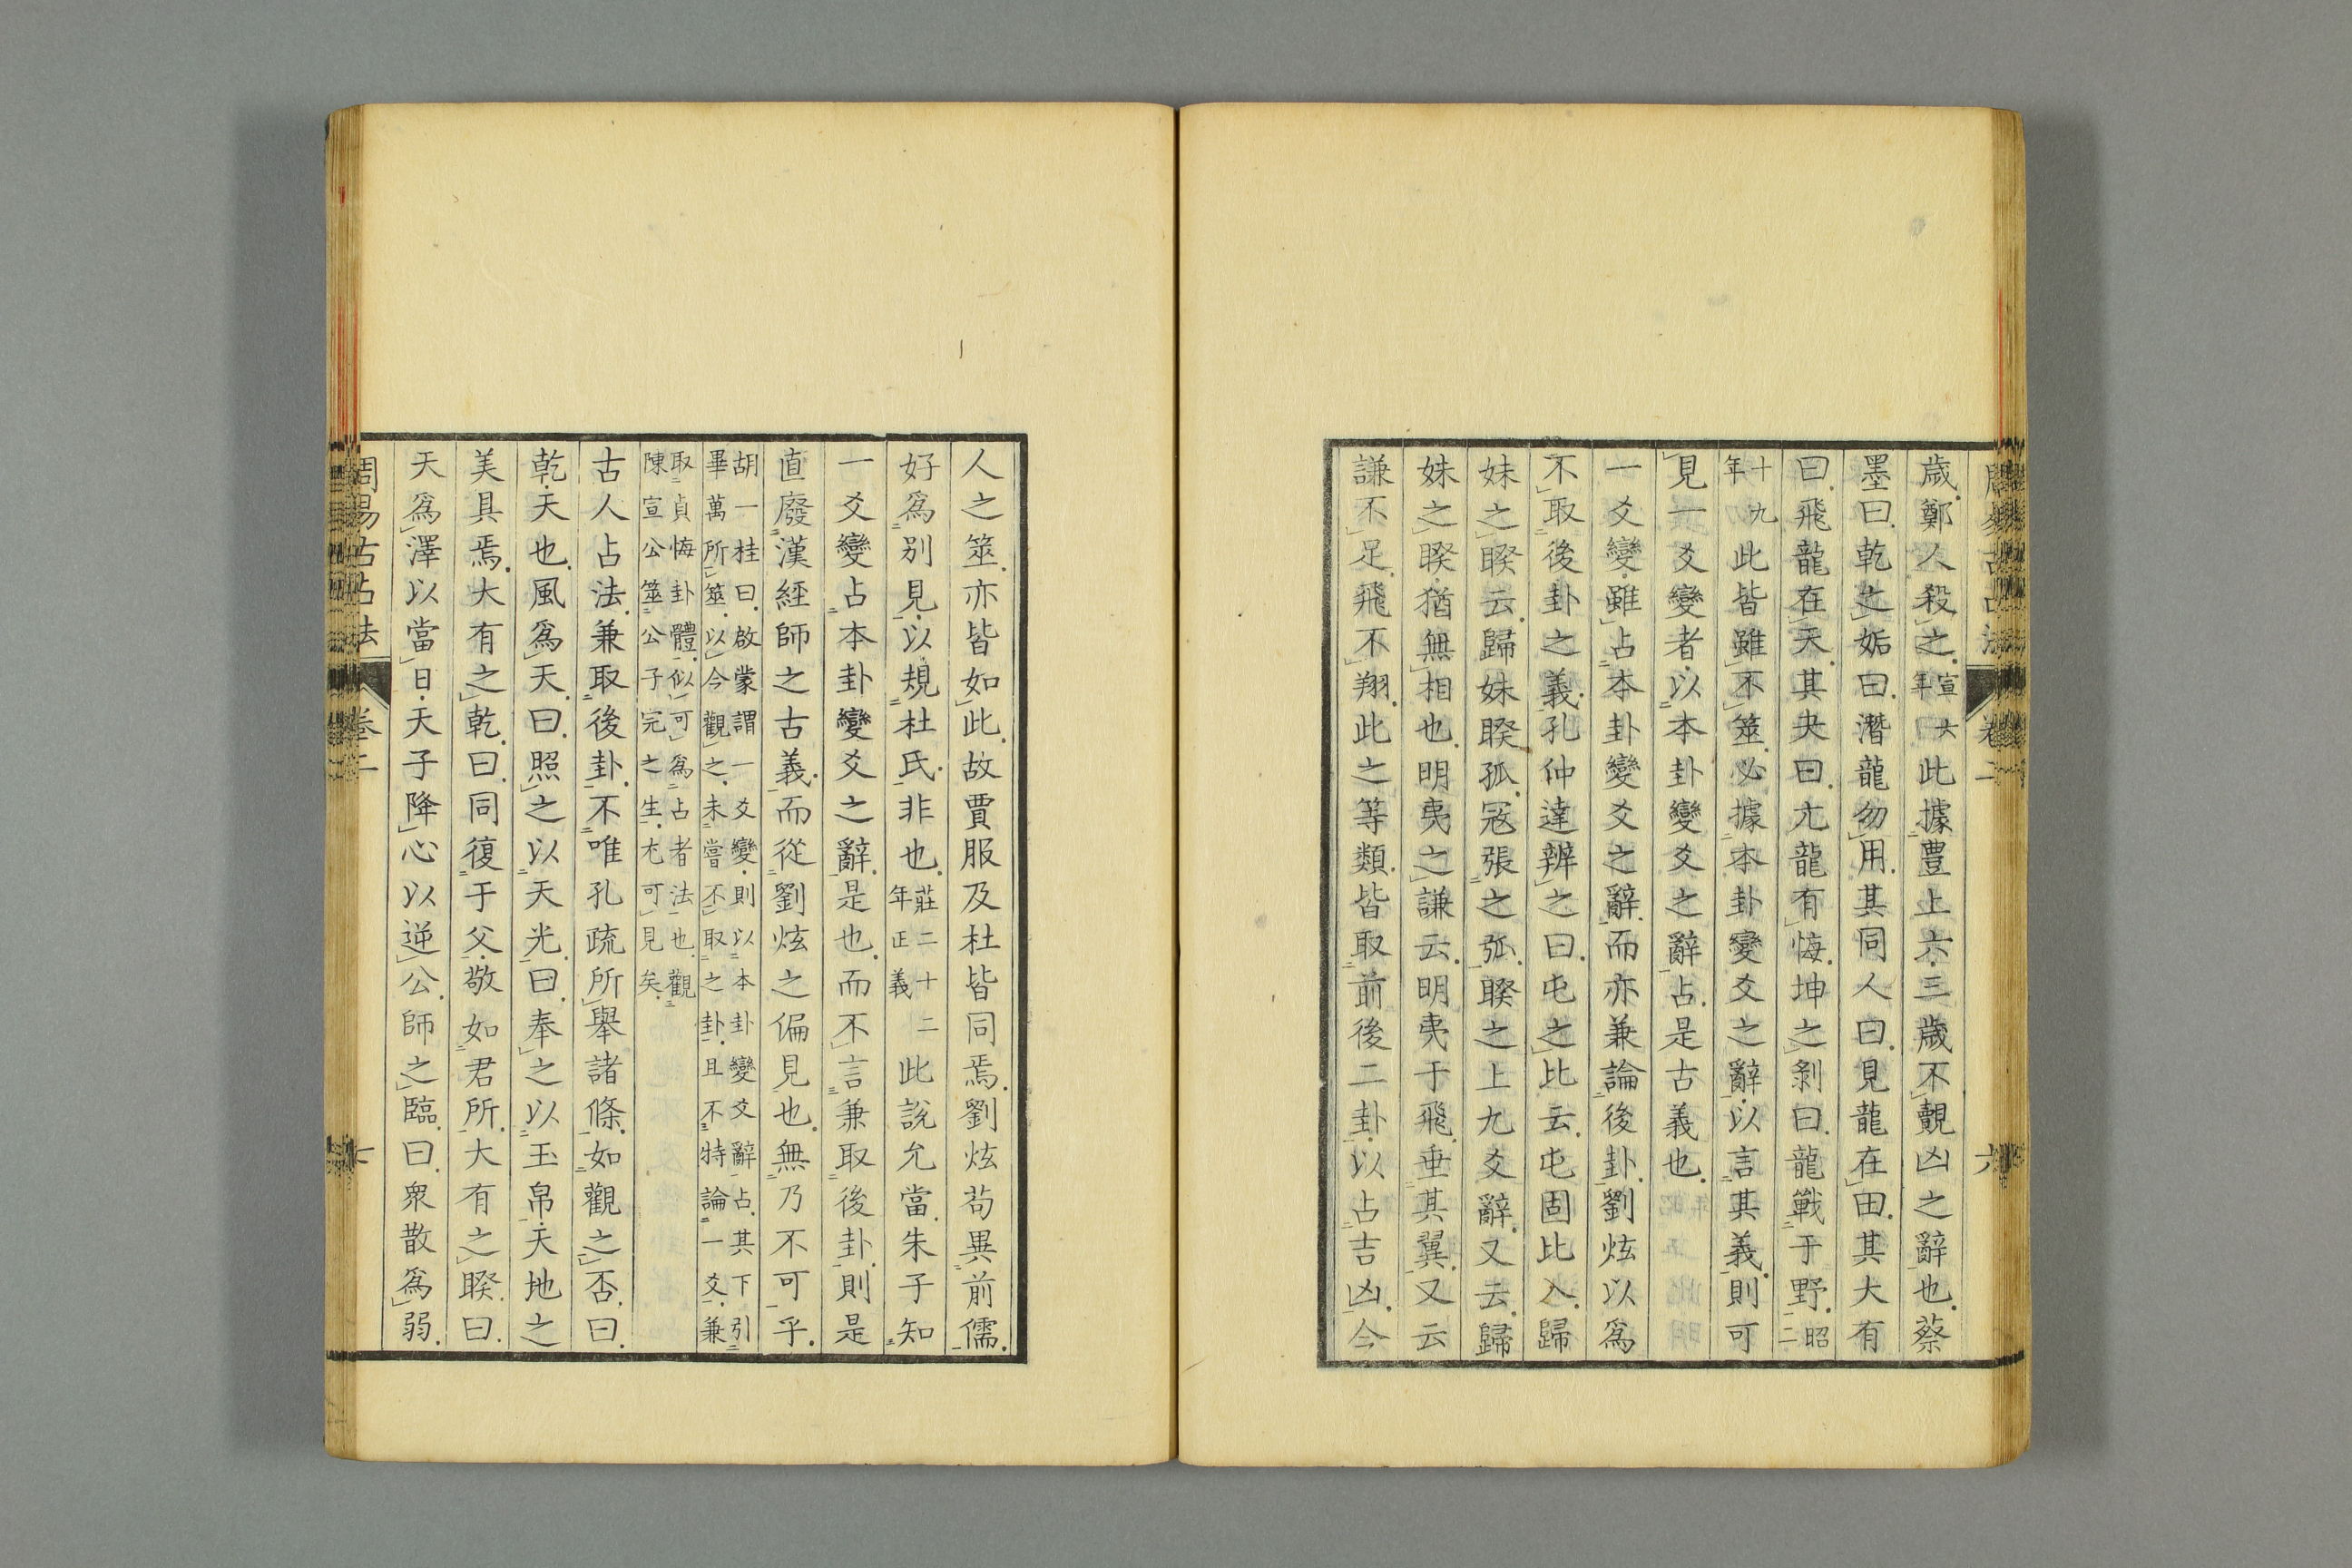 歲鄭人殺之宣六年此據豊上六三歲不覿凶之辭也蔡
墨曰乾之姤曰潛龍勿用其同人曰見龍在田其大有
曰飛龍在天其夬曰亢龍有悔坤之剝曰龍戰于野昭二
十九年此皆雖不筮必據本卦變爻之辭以言其義則可
見一爻變者以本卦變爻之辭占是古義也
一爻變雖占本卦變爻之辭而亦兼論後卦劉炫以爲
不取後卦之義孔仲達辨之曰屯之比云屯固比入歸
妹之睽云歸妹睽孤冦張之弧睽之上九爻辭又云歸
妹之睽猶無相也明夷之謙云明夷于飛垂其翼又云
謙不足飛不翔此之等類皆取前後二卦以占吉凶今
人之筮亦皆如此故賈服及杜皆同焉劉炫苟異前儒
好爲别見以規杜氏非也莊二十二年正義此說允當朱子知
一爻變占本卦變爻之辭是也而不言兼取後卦則是
直廢漢經師之古義而從劉炫之偏見也無乃不可乎
胡一桂曰啟蒙謂一爻變則以本卦變爻辭占其下引
畢萬所筮以今觀之未嘗不取之卦且不特論一爻兼
取貞悔卦體似可爲占者法也觀
陳宣公筮公子完之生尤可見矣
古人占法兼取後卦不唯孔疏所舉諸條如觀之否曰
乾天也風爲天曰照之以天光曰奉之以玉帛天地之
美具焉大有之乾曰同復于父敬如君所大有之睽曰
天爲澤以當日天子降心以逆公師之臨曰衆散爲弱
周易古占法 卷二